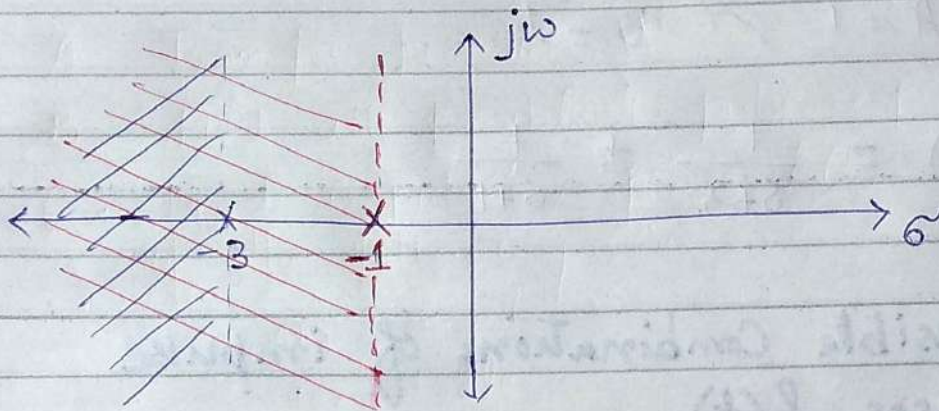 jω
σ
-3
-1